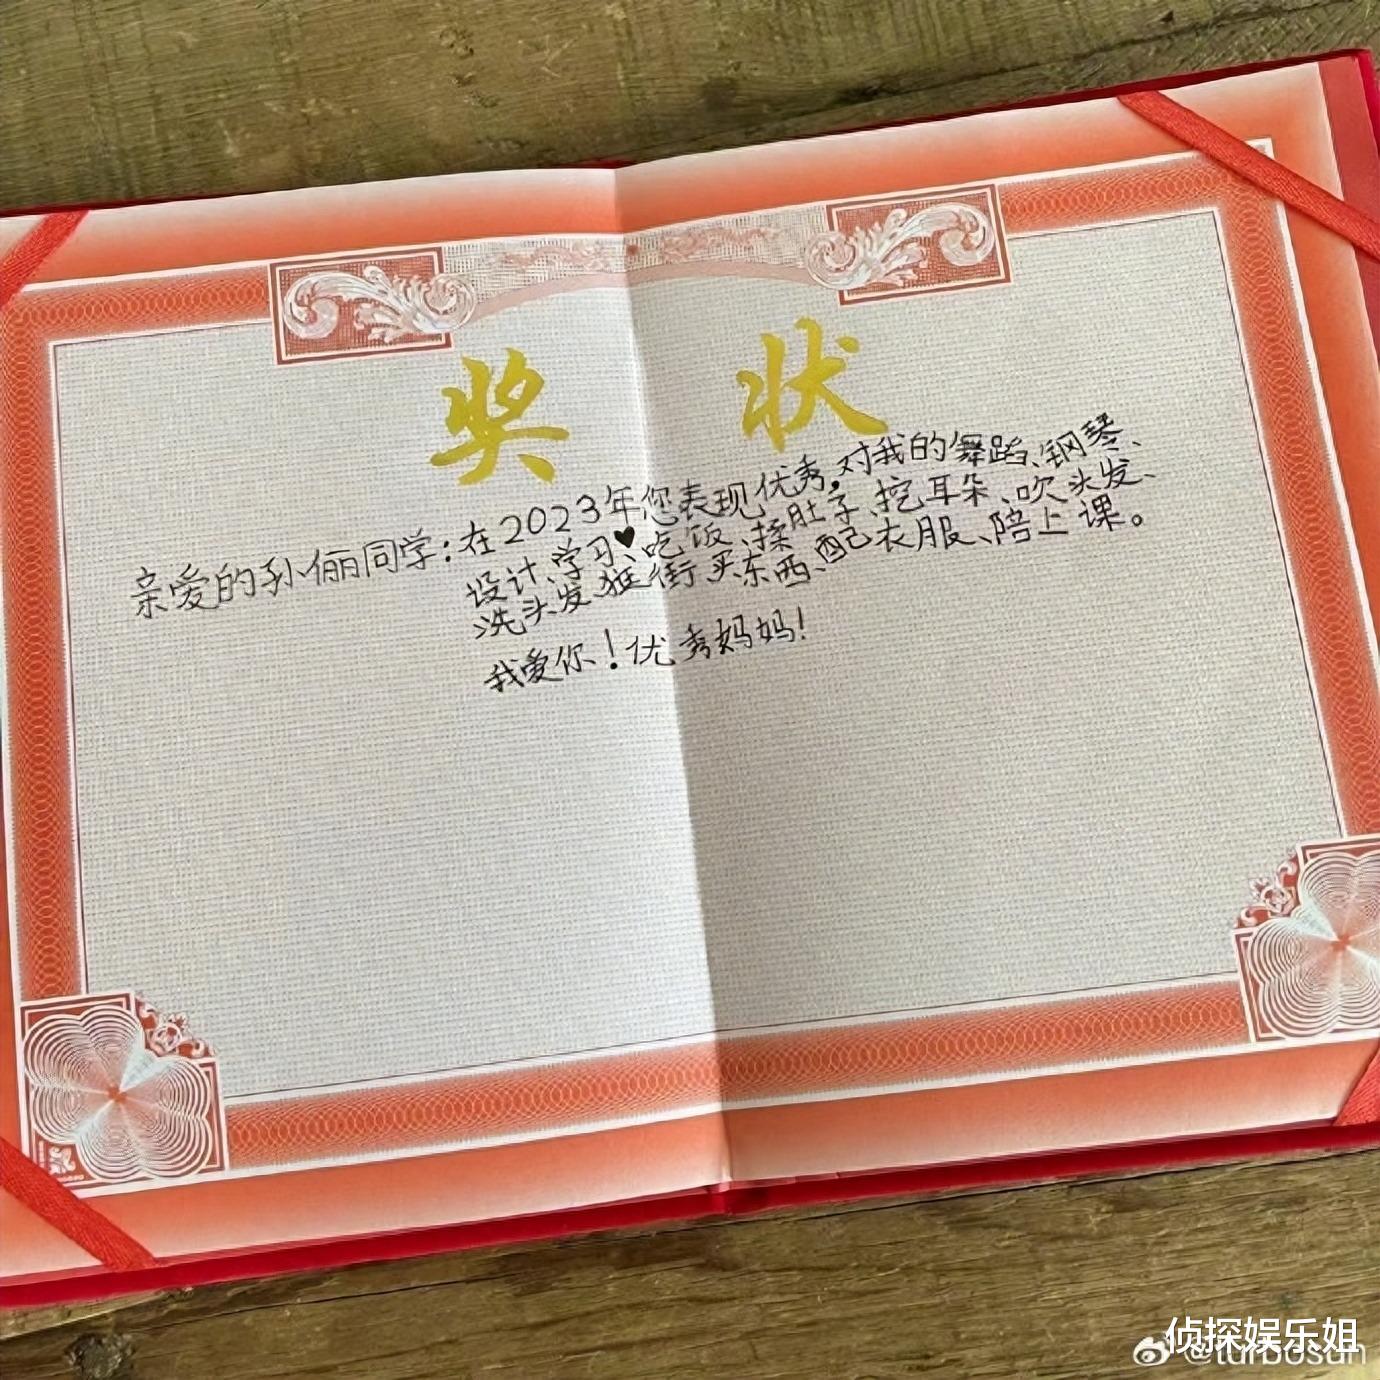 奖状
亲爱的孙俪同学:在2023年您表现优秀,对我的舞蹈、钢琴、
设计、学习♥、吃饭、揉肚子、挖耳朵、吹头发、
洗头发、逛街买东西、配衣服、陪上课。
我爱你!优秀妈妈!
侦探娱乐姐
@turbosun